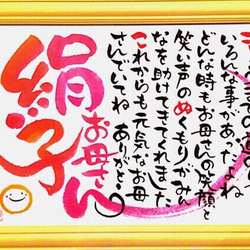 いろんな事があったよね
どんな時もお母さんの笑顔と
笑い声のぬくもりがみん
なを助けてきてくれました
これからも元気なお母
さんでいてね ありがと。
お母さん
絹子